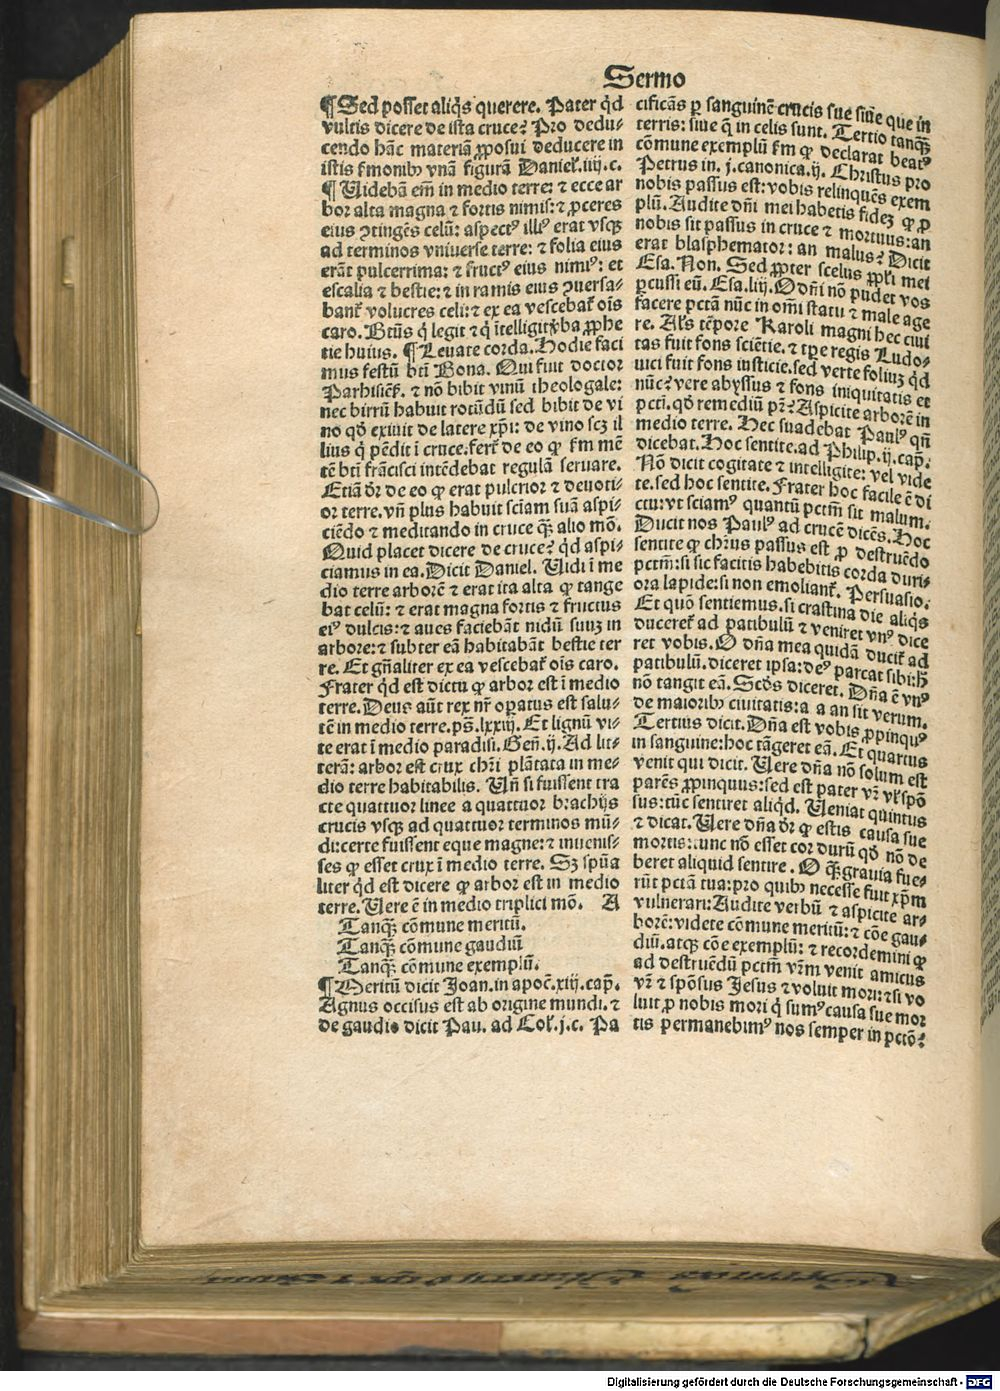 Sermo
¶ Sed posset aliq̄s querere. Pater q̇d
vultis dicere de ista cruce? Pro dedu⸗
cendo hāc materiā ꝓposui deducere in
istis ẜmonibꝰ vnā figurā Daniel̕. iiij. c.
¶ Uidebā em̄ in medio terre: ⁊ ecce ar
bor alta magna ⁊ fortis nimis: ⁊ ꝓceres
eius ꝯtingēs celū: aspectꝰ illiꝰ erat vsqꝫ
ad terminos vniuerse terre: ⁊ folia eius
erāt pulcerrima: ⁊ fructꝰ eius nimiꝰ: et
escalia ⁊ bestie: ⁊ in ramis eius ꝯuersa⸗
banť volucres celi: ⁊ ex ea vescebať oīs
caro. Btūs q̇ legit ⁊ q̇ ītelligit ꝟba ꝓphe
tie huius. ¶ Leuate corda. Hodie faci
mus festū btī Bona. Qui fuit doctor
Parhisieň. ⁊ nō bibit vinū theologale:
nec birrū habuit rotūdū sed bibit de vi
no qd̄ exiuit de latere xp̄i: de vino scꝫ il
lius q̇ pēdit ī cruce. ferť de eo ꝙ ẜm mē
tē btī frācisci intēdebat regulā seruare.
Etiā dr̄ de eo ꝙ erat pulcrior ⁊ deuoti⸗
or terre. vn̄ plus habuit sciam̄ suā aspi⸗
ciēdo ⁊ meditando in cruce q̄ꝫ alio mō.
Quid placet dicere de cruce? q̇d aspi⸗
ciamus in ea. Dicit Daniel. Uidi ī me
dio terre arborē ⁊ erat ita alta ꝙ tange
bat celū: ⁊ erat magna fortis ⁊ fructus
eiꝰ dulcis: ⁊ aues faciebāt nidū suuꝫ in
arbore: ⁊ subter eā habitabāt bestie ter
re. Et gn̄aliter ex ea vescebať oīs caro.
Frater q̇d est dictū ꝙ arbor est ī medio
terre. Deus aūt rex nr̄ oꝑatus est salu⸗
tē in medio terre. ps̄. lxxiij. Et lignū vi⸗
te erat ī medio paradisi. Geň. ij. Ad lit⸗
terā: arbor est crux chr̄i plātata in me⸗
dio terre habitabilis. Un̄ si fuissent tra
cte quattuor linee a quattuor brachijs
crucis vsqꝫ ad quattuor terminos mū⸗
di: certe fuissent eque magne: ⁊ inuenis⸗
ses ꝙ esset crux ī medio terre. Sꝫ spūa
liter q̇d est dicere ꝙ arbor est in medio
terre. Uere ē in medio triplici mō. A
Tanq̄ꝫ cōmune meritū.
Tanq̄ꝫ cōmune gaudiū
Tanq̄ꝫ cōmune exemplū.
¶ Meritū dicit Joan. in apoč. xiij. cap̄.
Agnus occisus est ab origine mundi. ⁊
de gaudio dicit Pau. ad Col̕. j. c. Pa
cificās ꝑ sanguinē crucis sue siue que in
terris: siue q̄ in celis sunt. Tertio tanq̄ꝫ
cōmune exemplū ẜm ꝙ declarat beatꝰ
Petrus in. j. canonica. ij. Christus pro
nobis passus est: vobis relinquēs exem
plū. Audite dn̄i mei habetis fideꝫ ꝙ ꝓ
nobis sit passus in cruce ⁊ mortuus: an
erat blasphemator: an malus? Dicit
Esa. Non. Sed ꝓpter scelus ꝓpl̓i mei
ꝑcussi eū. Esa. liij. O dn̄i nō pudet vos
facere pctā nūc in om̄i statu ⁊ male age
re. Al̕s tēpore Karoli magni hec ciui
tas fuit fons sciētie. ⁊ tꝑe regis Ludo⸗
uici fuit fons iusticie. sed verte foliuꝫ q̇d
nūc? vere abyssus ⁊ fons iniquitatis et
pcti. qd̄ remediū pr̄? Aspicite arborē in
medio terre. Hec suadebat Paulꝰ qn̄
dicebat. Hoc sentite. ad Philip. ij. cap̄.
Nō dicit cogitate ⁊ intelligite: vel vide
te. sed hoc sentite. Frater hoc facile ē di
ctu: vt sciamꝰ quantū pctm̄ sit malum.
Ducit nos Paulꝰ ad crucē dicēs. Hoc
sentite ꝙ chr̄us passus est ꝓ destruēdo
pctm̄: si sic facitis habebitis corda duri⸗
ora lapide: si non emolianť. Persuasio.
Et quō sentiemus. si crastina die aliq̄s
ducereť ad patibulū ⁊ veniret vnꝰ dice
ret vobis. O dn̄a mea quidā duciť ad
patibulū. diceret ipsa: deꝰ parcat sibi: h̄
nō tangit eā. Scd̄s diceret. Dn̄a ē vnꝰ
de maioribꝰ ciuitatis: a a an sit verum.
Tertius dicit. Dn̄a est vobis ꝓpinquꝰ
in sanguine: hoc tāgeret eā. Et quartus
venit qui dicit. Uere dn̄a nō solum est
parēs ꝓpinquus: sed est pater vr̄ vl̕ spō
sus: tūc sentiret aliq̇d. Ueniat quintus
⁊ dicat. Uere dn̄a dr̄ ꝙ estis causa sue
mortis: nunc nō esset cor durū qd̄ nō de
beret aliquid sentire. O q̄ꝫ grauia fue⸗
rūt pctā tua: pro quibꝰ necesse fuit xp̄m
vulnerari: Audite verbū ⁊ aspicite ar⸗
borē: videte cōmune meritū: ⁊ cōe gau⸗
diū. atqꝫ cōe exemplū: ⁊ recordemini ꝙ
ad destruēdū pctm̄ vr̄m venit amicus
vr̄ ⁊ spōsus Jesus ⁊ voluit mori: ⁊ si vo
luit ꝓ nobis mori q̇ sumꝰ causa sue mor
tis permanebimꝰ nos semper in pctō?
Digitalisierung gefördert durch die Deutsche Forschungsgemeinschaft - DFG